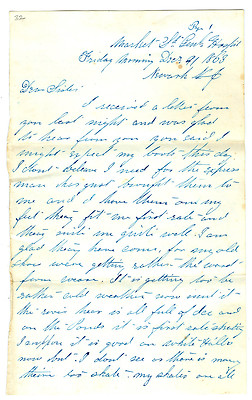 Pg. 1
Market St Genl Hospital
Friday Morning Dec 1863
Newark N J
Dear Sister
I received a letter from
you last night and was glad
to hear from you you said I
might expect my boots this day
I dont believe I need for the express
man has just brought them to
me and I have them on my
feet they fit me first rate and
they suit me quite well. I am
glad they have come, for my old
shoes were getting rather the worst
from wear. It is getting to be
rather cold weather now
the river here is all full of Ice and
on the Ponds it is first rate skating
I suppose it is good on White
now but I dont see as there is many
there to skate - my skates on all